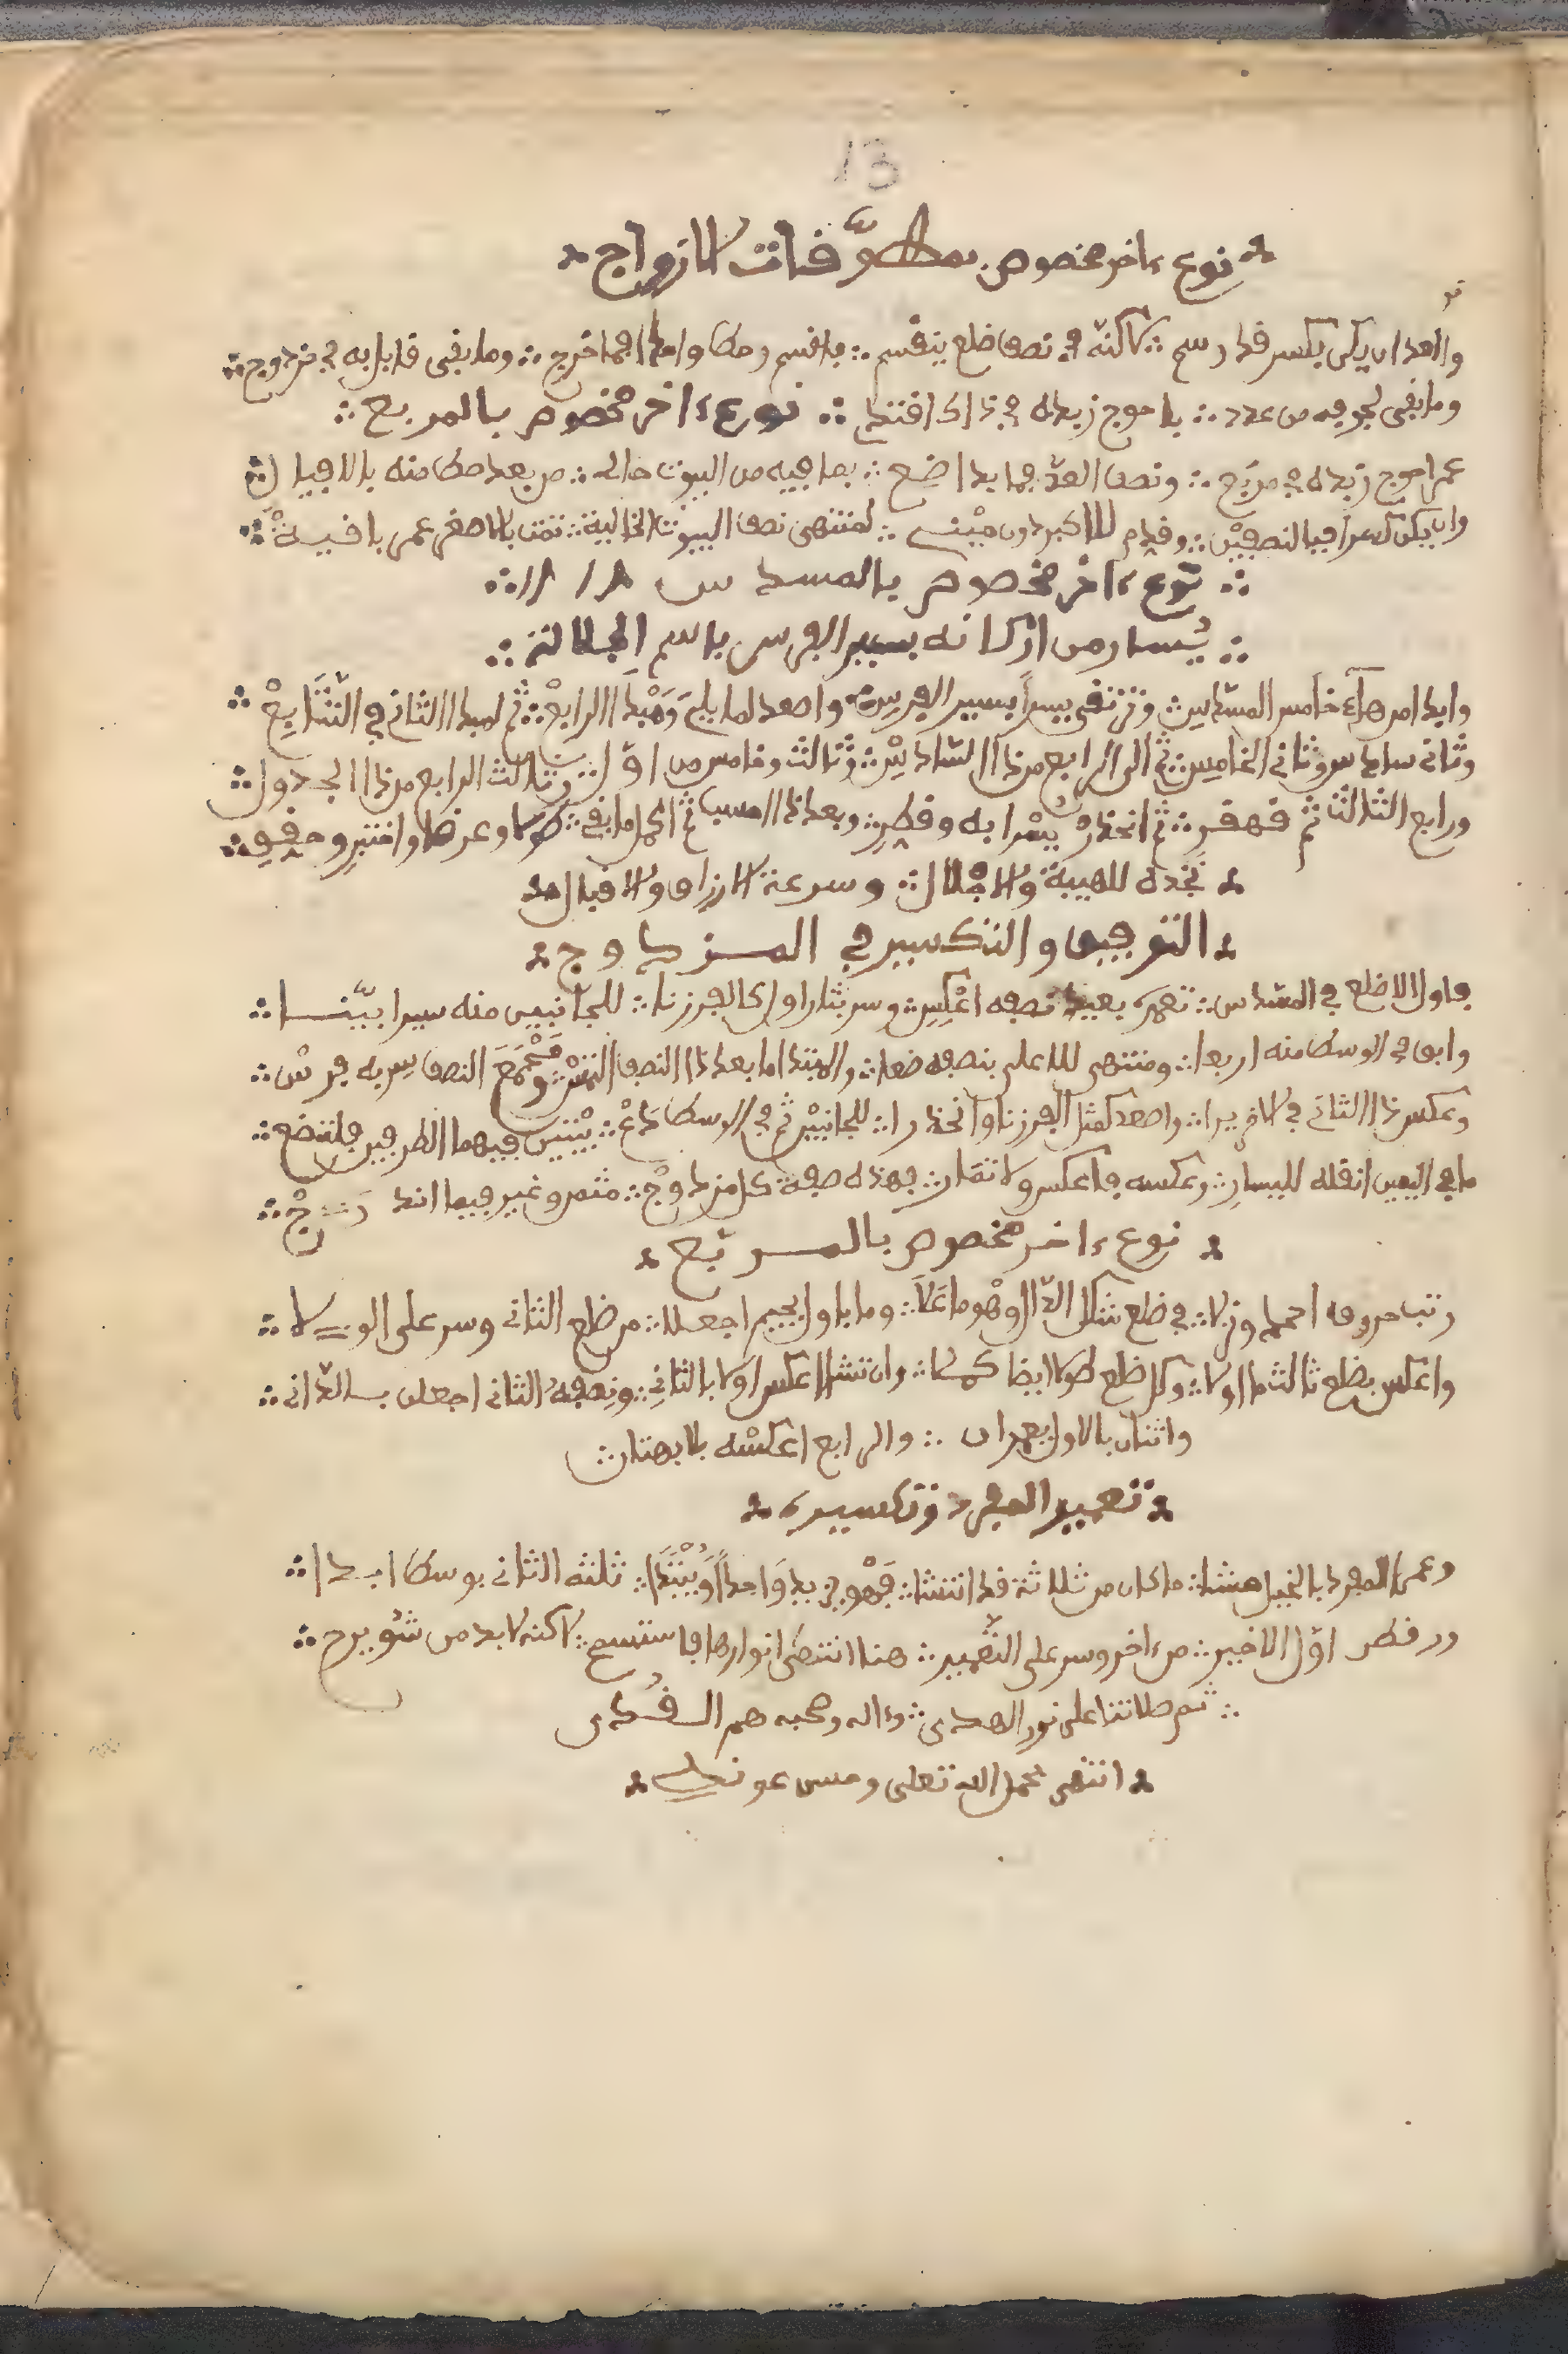 13
نوع ءاخر مخصوص بمطوّقات الازواج
والعد ان يكن بكسر قد رسم ∴ لاكنه في نصف ضلع ينقسم ∴ فاقسم وحط واحدا مما خرج ∴ وما بقى قابل به في مزدوج ∴
وما بقى لجوفه من عدد ∴ فاحوج زيده في ذاك اقتد ∴ نوع ءاخر مخصوص بالمربع ∴
عمر احوج زيده في مربع ∴ ونصف العدّ فيما بدا ضع ∴ بما فيه من البيوت خاله ∴ من بعد حط منه بالافيا
وان يكن كسرا في النصفين ∴ وقدم للاكبر دون مين ∴ لمنتهى نصف البيوت الخالية ∴ ثمت بالاصغر عمر باقيه ∴
∴ نوع ءاخر مخصوص بالمسدس ∴
∴ يسار من اركانه بسير الفرس باسم الجلالة ∴
وابدا من خامس المسدّس وترتقى يسرا بسير الفرس واصعد لما يلي ومبدا الرابع ∴ ثم لمبدا الثانى في التتابع ∴
وثانى سادس وثانى الخامس ∴ ثم الى الرابع من ذا السّادس ∴ وثالث وخامس من اوّل ∴ وثالث الرابع من ذا الجدول ∴
ورابع الثالث ثم قهقر ∴ ثم انحدر يسرا به وقطر ∴ وبعد ذا احسب ثم اكمل ما بقى ∴ طولا وعرضا واختبر وحقق ∴
تجده للهيبة والاجلال ∴ وسرعة الارزاق والاقبال
التوفيق والتكسير في المزدوج
فاول الاضلع في المسدّس ∴ تعمره بعيد نصفه اعكس ∴ وسر يسارا اولى كالفرزنا ∴ للجانبين منه سيرا بيّنا ∴
وابق في الوسط منه اربعا ∴ ومنتهى للاعلى بنصفه ضعا ∴ والابتدا ما بعد ذا النصف النصف سر به فرس ∴
وعكس ذا الثانى في الاخر يرا ∴ واصعد كمثل الفرزنا وانحدرا ∴ للجانبين ثم في الوسط دع ∴ بيتين فيهما الطرفين فلتضع ∴
ما في اليمين انقله لليسار ∴ وعكسه فاعكس ولا تمار ∴ فهذه صفة كل مزدوج ∴ مثمر وغير فيها اندرج ∴
نوع ءاخر مخصوص بالمربّع
رتب حروف احمد وزلا ∴ في ضلع شكل الدّال وهو ما علا ∴ وما باول بجيم اجعلا ∴ من ضلع الثانى وسر على الولا ∴
واعكس بضلع ثالث ما اولا ∴ وكل ضلع طولا ايضا كملا ∴ وان تشا اعكس اولا بالثانى ∴ ونصفه الثانى اجعلن بالدّانى ∴
واثنان بالاول يعمران ∴ والرابع اعكسه بلا بهتان ∴
تعمير المفرد وتكسيره
وعمر المفرد بالخيل هشا ∴ ما كان من ثلاثة قد انتشا ∴ فهو يزيد واحدا ويبتدا ∴ ثلثه الثانى بوسط ابدا ∴
اوّل الاخير ∴ من ءاخر وسر على التّعمير ∴ هنا انتهى انوارها فاستسع ∴ لاكنه لا بد من شويرح ∴
∴ ثم صلاتنا على نور الهدى ∴ وءاله وصحبه هم القدى
انتهى بحمد الله تعلى وحسن عونه